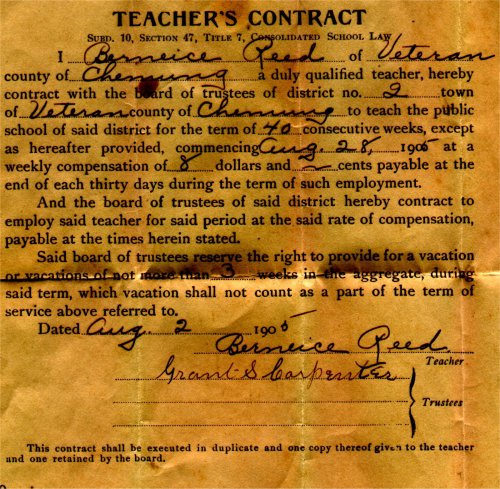 TEACHER'S CONTRACT
SUBD. 10, SECTION 47, TITLE 7, CONSOLIDATED SCHOOL LAW
I Berneice Reed of Veteran
county of Chemung a duly qualified teacher, hereby
contract with the board of trustees of district no. 2 town
of Veteran county of Chemung to teach the public
school of said district for the term of 40 consecutive weeks, except
as hereafter provided, commencing Aug. 28, 1905 at a
weekly compensation of 8 dollars and — cents payable at the
end of each thirty days during the term of such employment.
And the board of trustees of said district hereby contract to
employ said teacher for said period at the said rate of compensation,
payable at the times herein stated.
Said board of trustees reserve the right to provide for a vacation
or vacations of not more than 3 weeks in the aggregate, during
said term, which vacation shall not count as a part of the term of
service above referred to.
Dated Aug. 2 1905
Berneice Reed
Teacher
Grant S Carpenter
Trustees
This contract shall be executed in duplicate and one copy thereof given to the teacher
and one retained by the board.